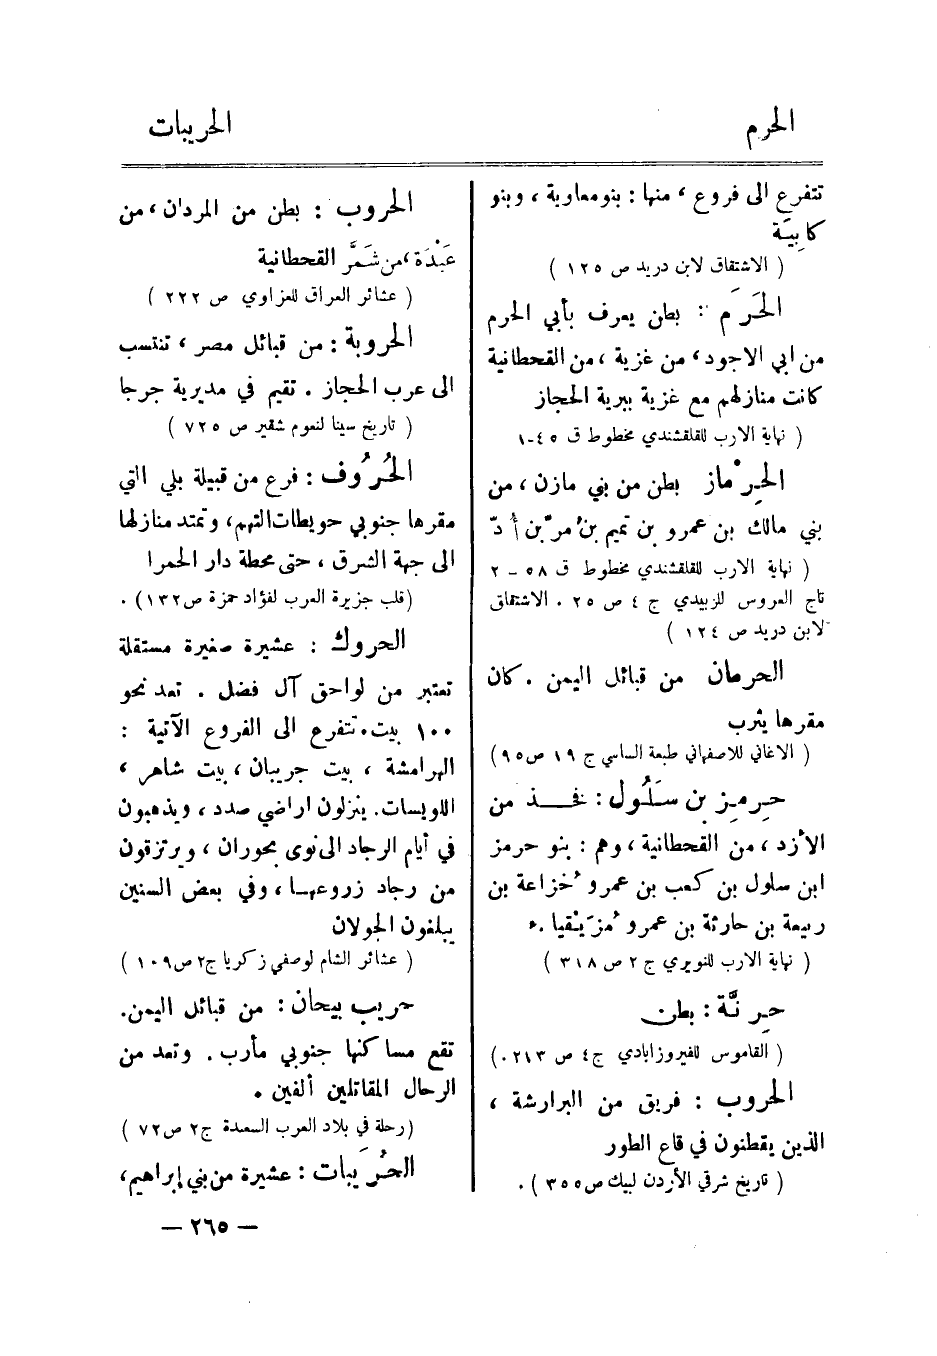 الحرم
الحريبات
تتفرع الى فروع ، منها : بنو معاوية ، وبنو
كابِيَة
( الاشتقاق لابن دريد ص ١٢٥ )
الحَرَم : بطن يعرف بأبي الحرم
من ابي الاجود ، من غزية ، من القحطانية
كانت منازلهم مع غزية ببرية الحجاز
( نهاية الارب للقلقشندي مخطوط ق ٤٥-١
الحِرْماز بطن من بني مازن ، من
بني مالك بن عمرو بن تميم بن مُرّ بن أُدّ
( نهاية الارب للقلقشندي مخطوط ق ٥٨ - ٢
تاج العروس للزبيدي ج ٤ ص ٢٥ . الاشتقاق
لابن دريد ص ١٢٤ )
الحرمان من قبائل اليمن . كان
مقرها يثرب
( الاغاني للاصفهاني طبعة الساسي ج ١٩ ص ٩٥ )
حِرمِز بن سَلُول : فخذ من
الأزد ، من القحطانية ، وهم : بنو حرمز
ابن سلول بن كعب بن عمرو خُزاعة بن
ربيعة بن حارثة بن عمرو مُزَيْقيا .
( نهاية الارب للنويري ج ٢ ص ٣١٨ )
حِرنَّة : بطن
( القاموس للفيروزابادي ج٤ ص ٢١٣ .)
الحروب : فريق من البرارشة ،
الذين يقطنون في قاع الطور
( تاريخ شرقي الأردن لبيك ص ٣٥٥ ) .
الحروب : بطن من المردان ، من
عَبْدَة ، من شَمَّر القحطانية
( عشائر العراق للعزاوي ص ٢٢٢ )
الحروبة : من قبائل مصر ، تنتسب
الى عرب الحجاز . تقيم في مديرية جرجا
( تاريخ سينا لنعوم شقير ص ٧٢٥ )
الحُرُوف : فرع من قبيلة بلي التي
مقرها جنوبي حويطات التهم ، وتمتد منازلها
الى جهة الشرق ، حتى محطة دار الحمرا
(قلب جزيرة العرب لفؤاد حمزة ص ١٣٢) .
الحروك : عشيرة صغيرة مستقلة
تعتبر من لواحق آل فضل . تعد نحو
١٠٠ بيت . تتفرع الى الفروع الآتية :
الهرامشة ، بيت جريبان ، بيت شاهر ،
اللويسات . ينزلون اراضي صدد ، ويذهبون
في أيام الرجاد الى نوى بحوران ، ويرتزقون
من رجاد زروعها ، وفي بعض السنين
يبلغون الجولان
( عشائر الشام لوصفي زكريا ج٢ ص ١٠٩ )
حريب بيحان : من قبائل اليمن .
تقع مساكنها جنوبي مأرب . وتعد من
الرجال المقاتلين ألفين .
(رحلة في بلاد العرب السعيدة ج٢ ص ٧٢ )
الحُرَيبات : عشيرة من بني إبراهيم ،
— ٢٦٥ —